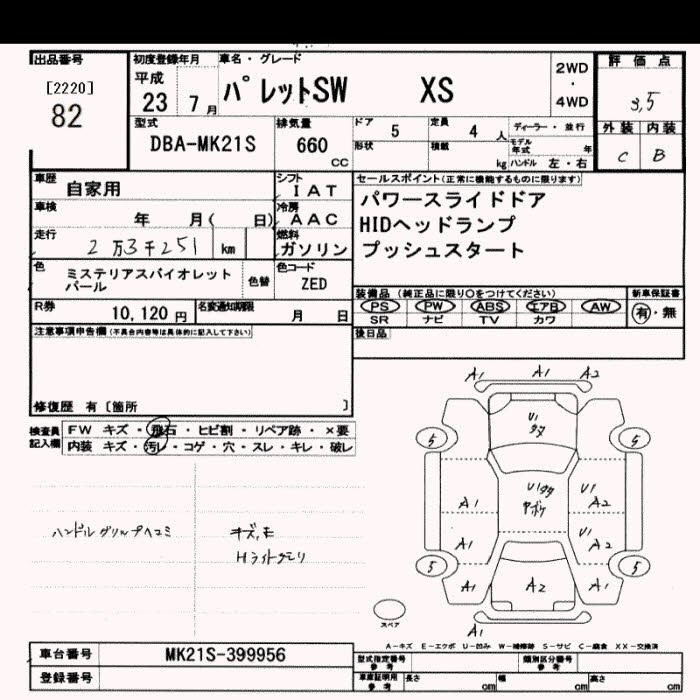 出品番号 初度登録年月 車名・グレード 評価点
[2220] 平成 パレットSW XS 2WD
82 23 7月 ・ 3,5
4WD
型式 排気量 ドア 定員 ディーラー・並行 外装 内装
DBA-MK21S 660 5 4 人 モデル年式 年 C B
CC 形状 積載 kg ハンドル 左・右
車歴 自家用 シフト IAT セールスポイント(正常に機能するものに限ります)
車検 年 月( 日) 冷房 AAC パワースライドドア
走行 2万3千251 km 燃料 ガソリン HIDヘッドランプ
プッシュスタート
色 ミステリアスバイオレット 色替 色コード
パール ZED
装備品(純正品に限り○をつけてください) 新車保証書
R券 10,120円 名変通知期限 月 日 PS PW ABS エアB AW 有・無
SR ナビ TV カワ
注意事項申告欄(不具合内容等は具体的に記入して下さい) 後日品
修復歴 有〔箇所 〕
検査員 FW キズ・飛石・ヒビ割・リペア跡・×要
記入欄 内装 キズ・汚レ・コゲ・穴・スレ・キレ・破レ
A1 A1 A2
U1
タメ
5 5
ハンドルグリップヘコミ キズ,モ
Hライトクモリ
A1 U1タタ U1
ヤボケ A2
A1 U1
A2
5 5
A1 A2 A1
スペア
A1
A-キズ E-エクボ U-凹み W-補修跡 S-サビ C-腐食 XX-交換済
車台番号 MK21S-399956 型式指定番号 参考 類別区分番号 参考
登録番号 車庫証明用 参考 長さ cm 幅 cm 高さ cm